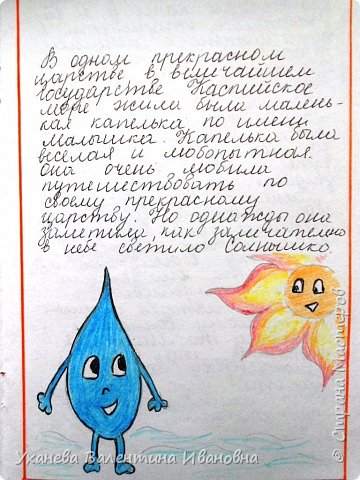 В одном прекрасном
царстве в величайшем
государстве Каспийское
море жила была малень-
кая капелька по имени
Малышка. Капелька была
весёлая и любопытная.
Она очень любила
путешествовать по
своему прекрасному
царству. Но однажды она
заметила, как замечательно
в небе светило Солнышко.
Уканева Валентина Ивановна
© Страна Мастеров